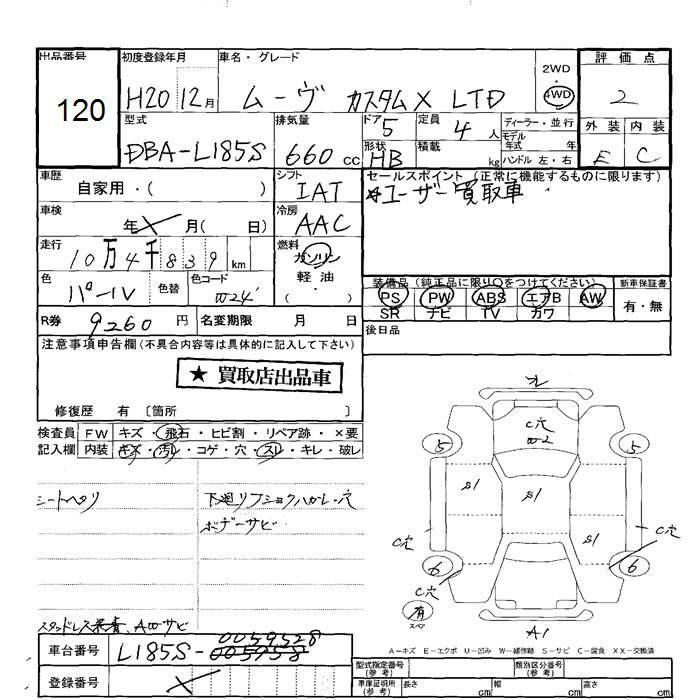 出品番号
120
初度登録年月
H20 12月
車名・グレード
ムーヴ カスタムX LTD
2WD
・
4WD
評価点
2
外装 内装
E C
型式
DBA-L185S
排気量
660 cc
ドア
5
形状
HB
定員
4 人
積載
kg
ディーラー・並行
モデル
年式 年
ハンドル 左・右
車歴
自家用・( )
シフト
IAT
セールスポイント (正常に機能するものに限ります)
★ユーザー買取車
車検
年 月( 日)
冷房
AAC
走行
10万4千839 km
燃料
ガソリン
軽油
・
( )
色
パール
色替
色コード
W24
装備品 (純正品に限り○をつけてください)
PS PW ABS エアB AW
SR ナビ TV カワ
新車保証書
有・無
R券 9260 円
名変期限 月 日
後日品
注意事項申告欄 (不具合内容等は具体的に記入して下さい)
★ 買取店出品車
修復歴 有 〔箇所 〕
検査員
記入欄
FW キズ・飛石・ヒビ割・リペア跡・×要
内装 キズ・汚レ・コゲ・穴・スレ・キレ・破レ
シートヘリ
下廻リフショクハガレ・穴
ボデーサビ
スタッドレス
AWサビ
C穴
W-2
5
5
S1
S1
S1
C穴
C穴
6
6
C穴
有
スペア
A1
A=キズ E=エクボ U=凹み W=補修跡 S=サビ C=腐食 XX=交換済
車台番号
L185S-0059528
005958
登録番号
型式指定番号
(参考)
類別区分番号
(参考)
車庫証明所
(参考)
長さ cm
幅 cm
高さ cm